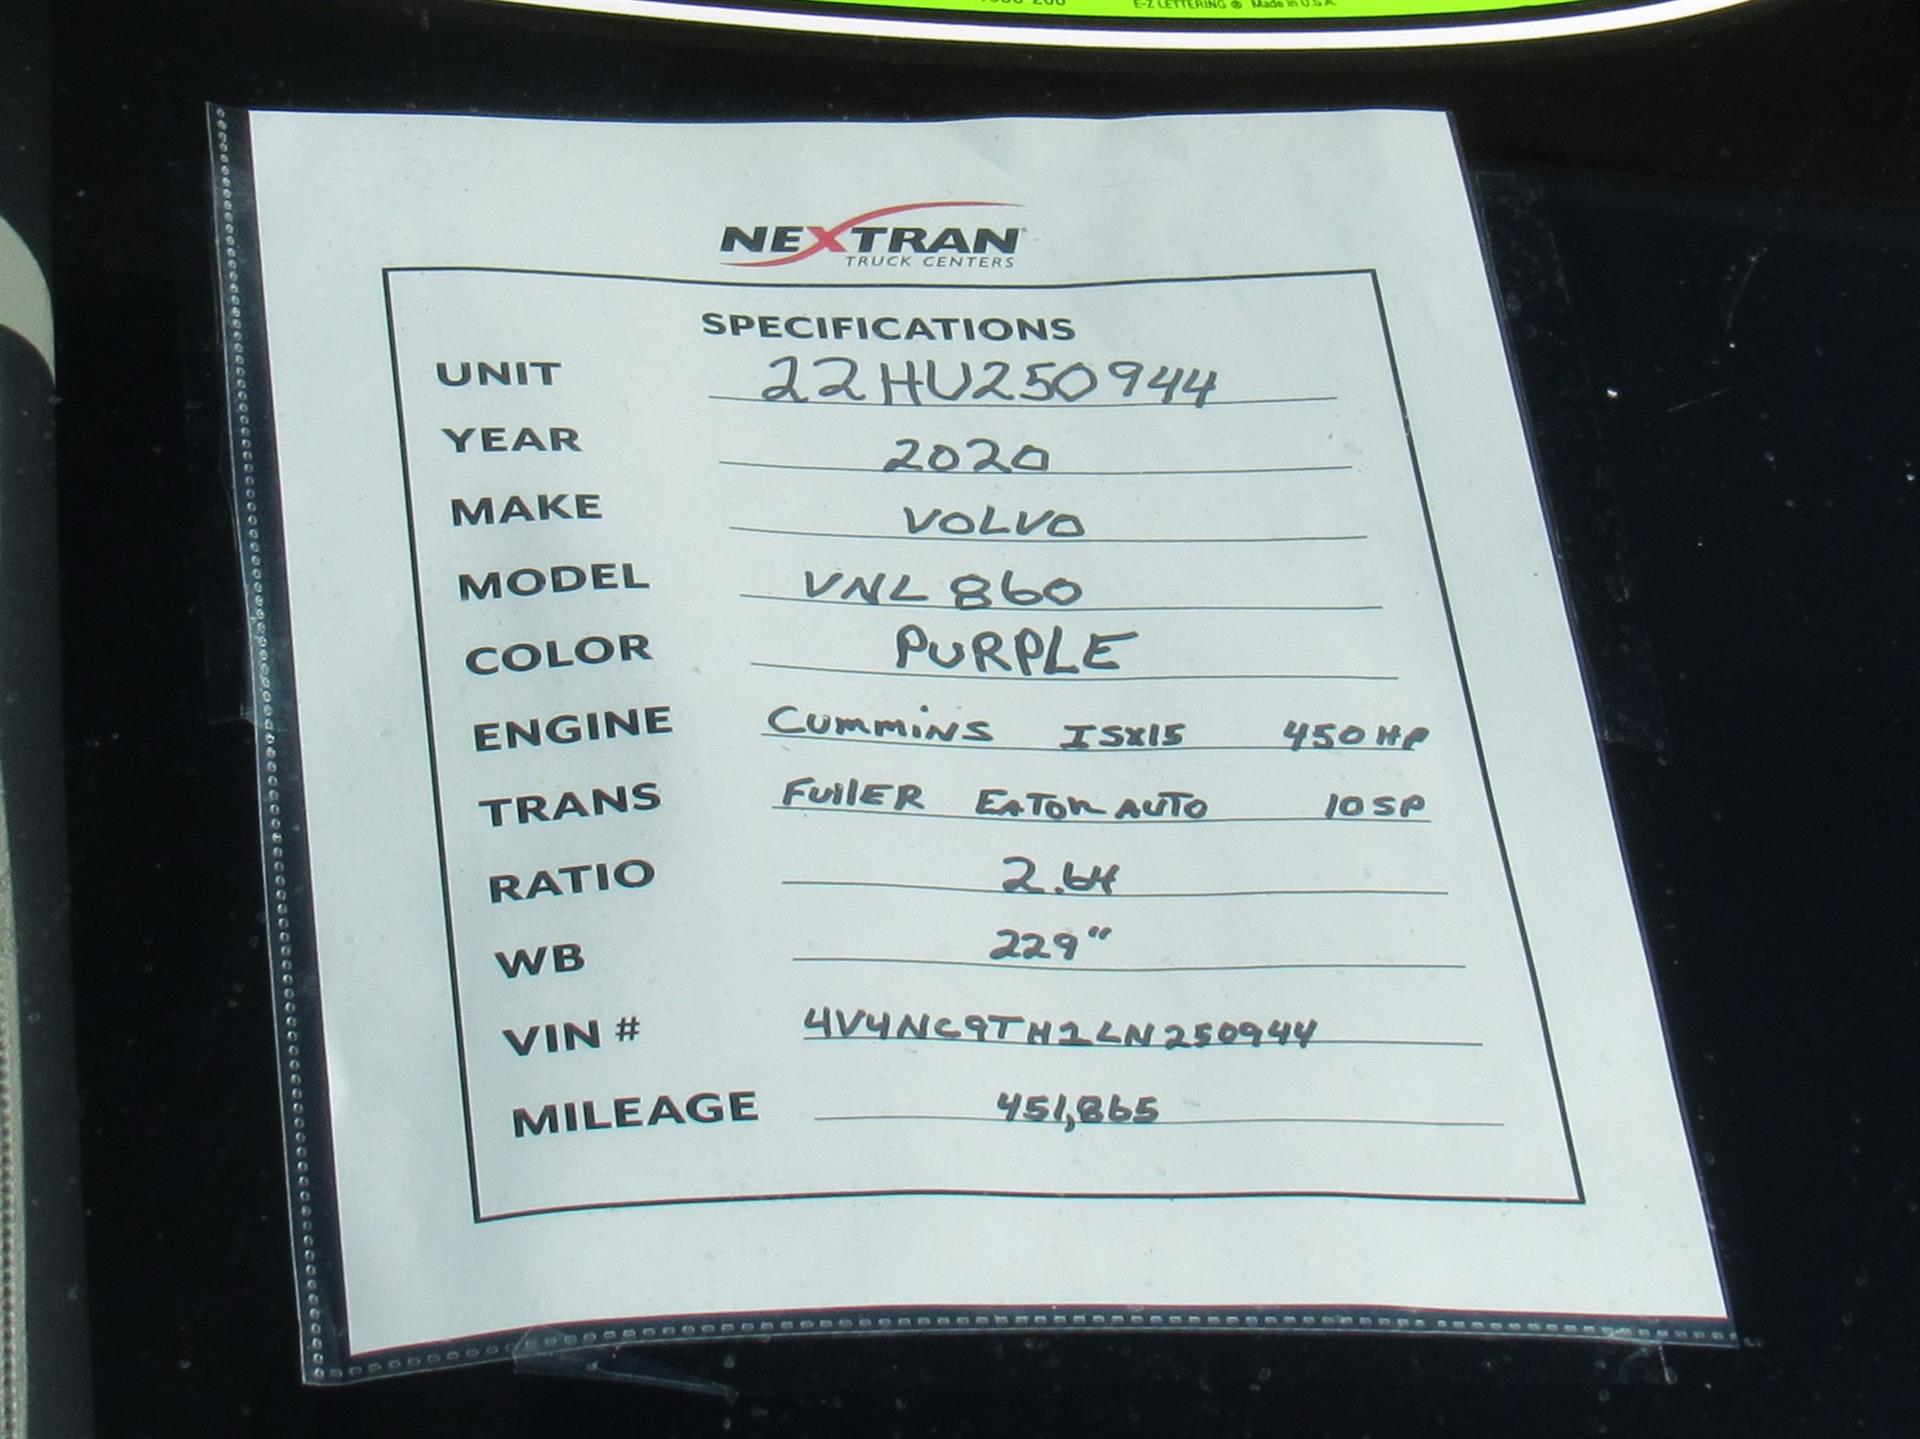 E-Z LETTERING ® Made in U.S.A.
NEXTRAN
TRUCK CENTERS
SPECIFICATIONS
UNIT 22HU250944
YEAR 2020
MAKE VOLVO
MODEL VNL 860
COLOR PURPLE
ENGINE Cummins ISX15 450HP
TRANS FullER EATON AUTO 10SP
RATIO 2.64
WB 229"
VIN # 4V4NC9TH1LN250944
MILEAGE 451,865